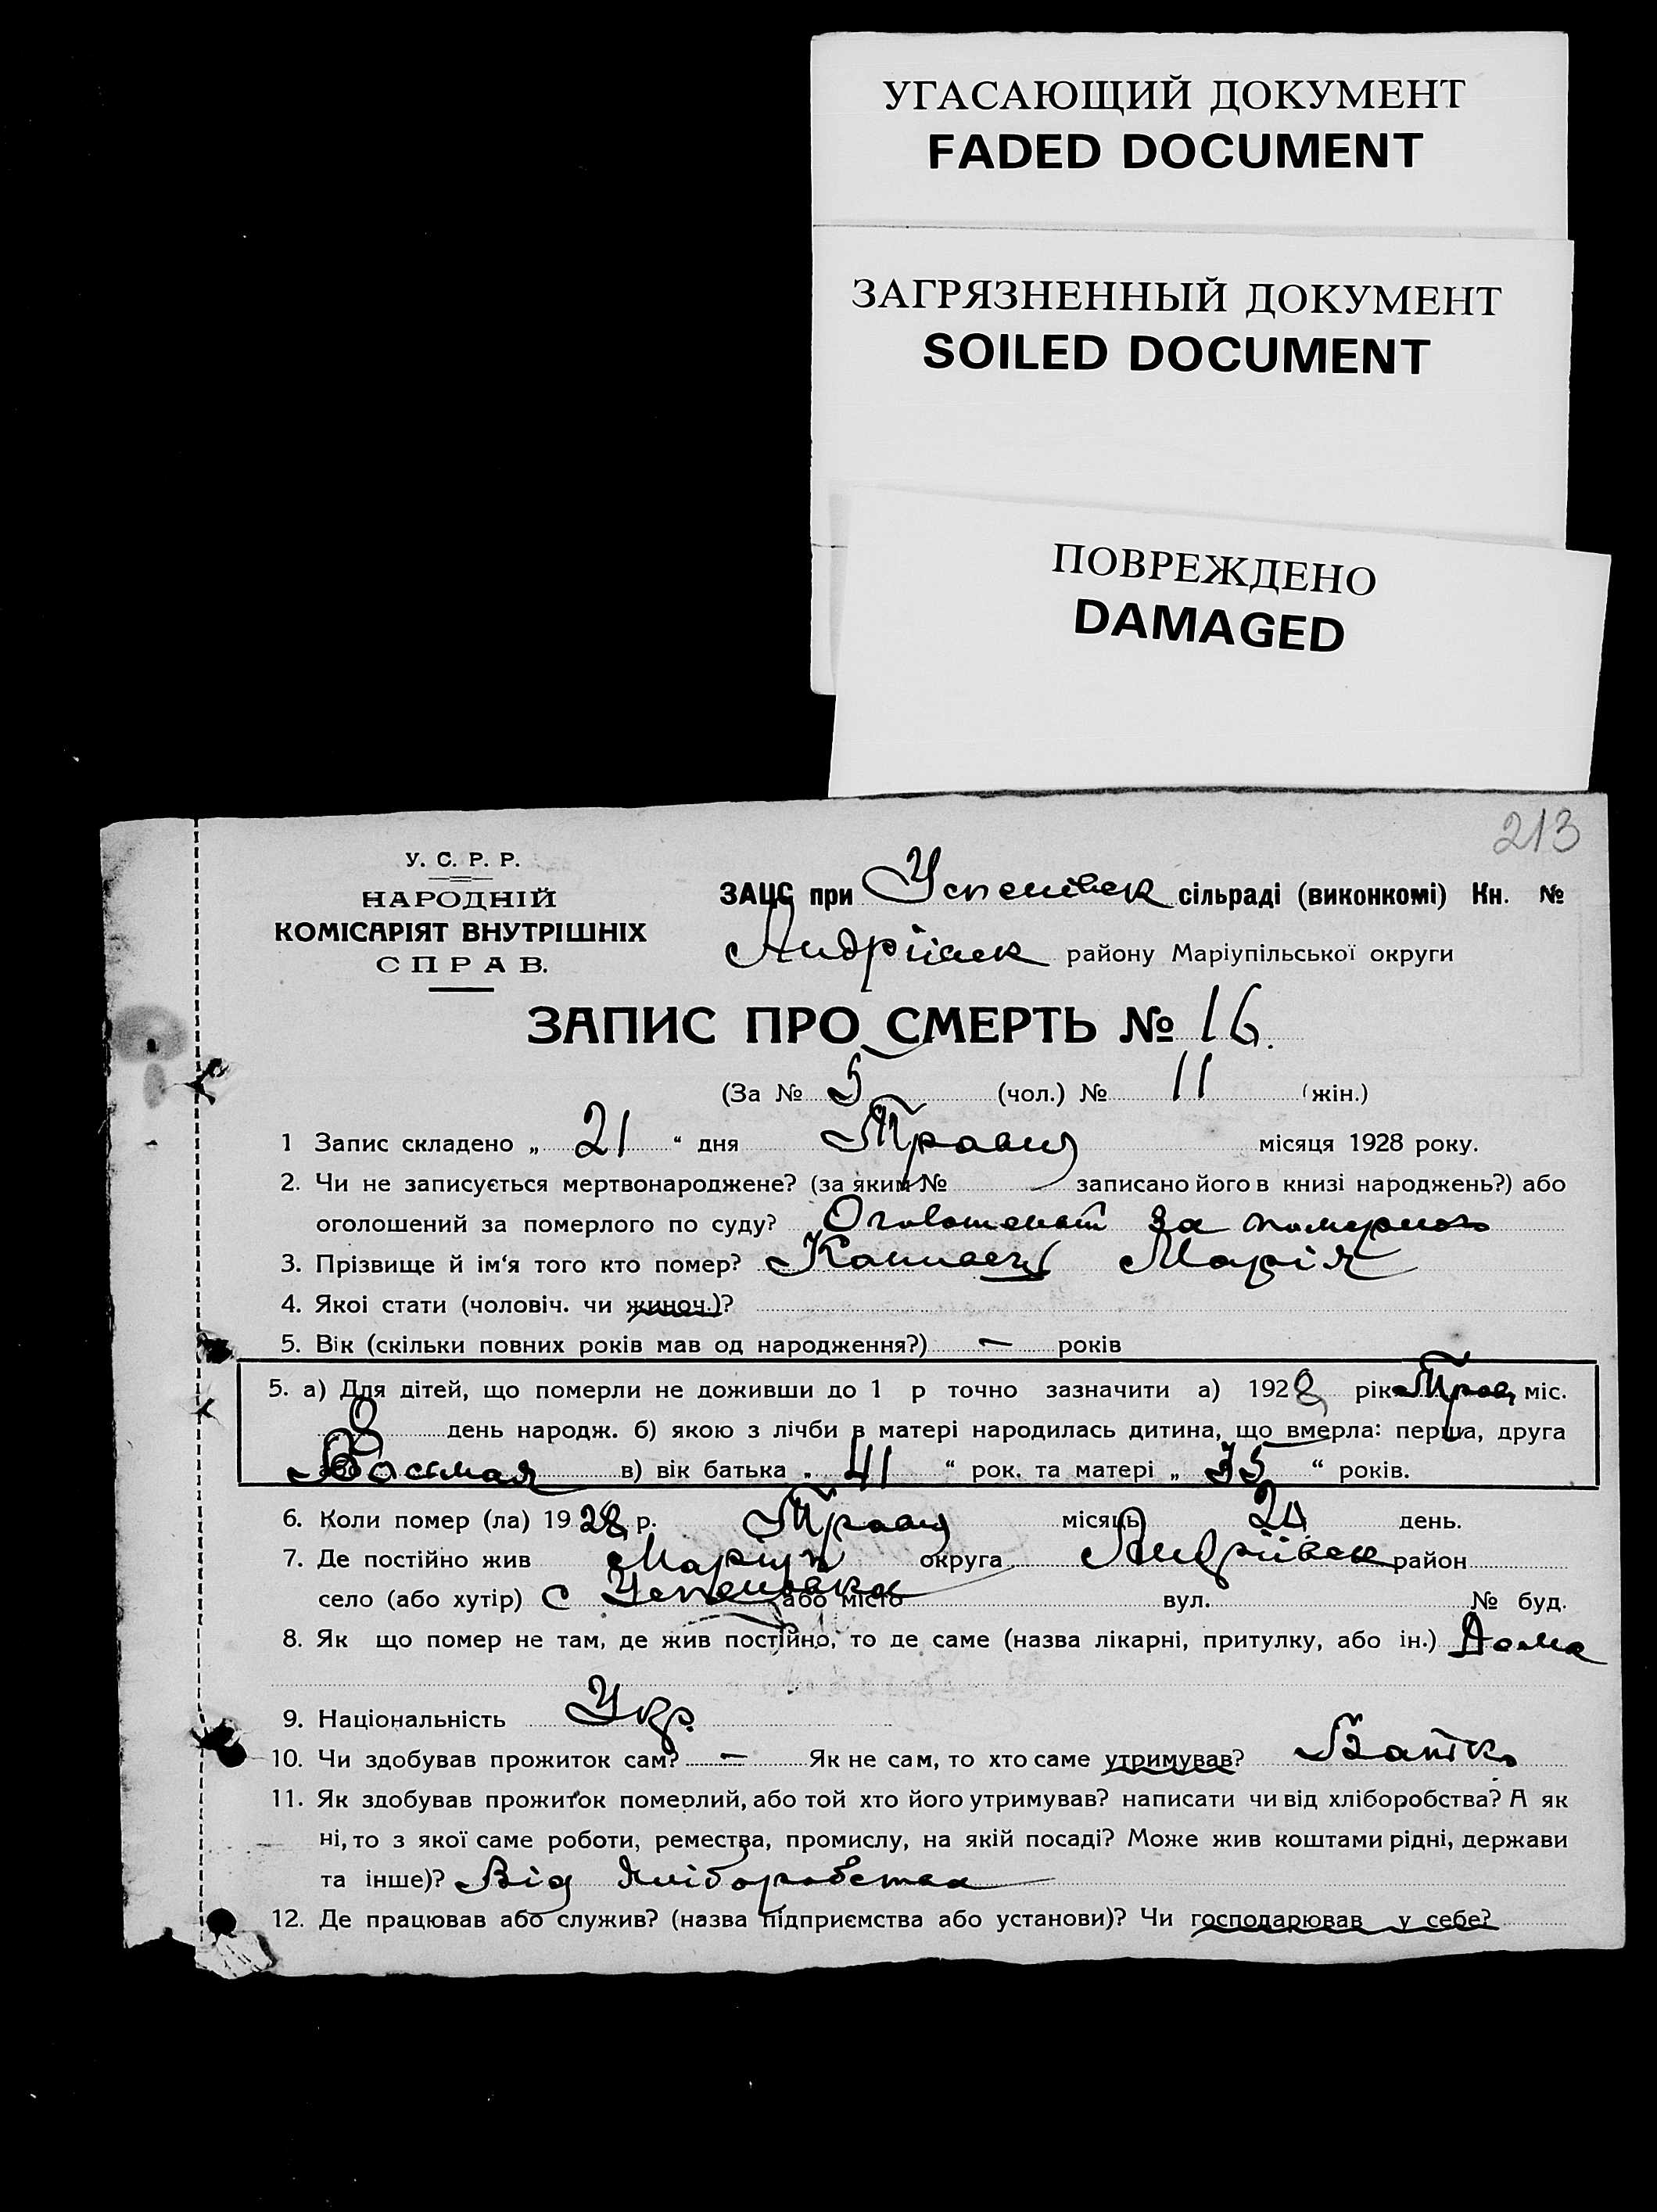 УГАСАЮЩИЙ ДОКУМЕНТ
FADED DOCUMENT
ЗАГРЯЗНЕННЫЙ ДОКУМЕНТ
SOILED DOCUMENT
ПОВРЕЖДЕНО
DAMAGED
213
У. С. Р. Р.
НАРОДНІЙ
КОМІСАРІЯТ ВНУТРІШНІХ
СПРАВ.
ЗАЦС при Успенівск сільраді (виконкомі) Кн. №
Андріівск району Маріупільської округи
ЗАПИС ПРО СМЕРТЬ № 16.
(За № 5 (чол.) № 11 (жін.)
1 Запис складено „ 21 “ дня Травня місяця 1928 року.
2. Чи не записується мертвонароджене? (за яким № записано його в книзі народжень?) або
оголошений за померлого по суду? за
3. Прізвище й ім‘я того кто помер? Марія
4. Якоі стати (чоловіч. чи жиноч.)?
5. Вік (скільки повних років мав од народження?) — років
5. а) Для дітей, що померли не доживши до 1 р точно зазначити а) 1928 рік Трав міс.
8 день народж. б) якою з лічби в матері народилась дитина, що вмерла: перша, друга
або Восьмая в) вік батька „ 41 “ рок. та матері „ 35 “ років.
6. Коли помер (ла) 1928 р. Травня місяць день.
7. Де постійно жив Маріуп округа Андріівск район
село (або хутір) с Успенівка або місто вул. № буд.
8. Як що помер не там, де жив постійно, то де саме (назва лікарні, притулку, або ін.) Дома
9. Національність Укр.
10. Чи здобував прожиток сам? — Як не сам, то хто саме утримував? Батько
11. Як здобував прожиток померлий, або той хто його утримував? написати чи від хліборобства? А як
ні, то з якої саме роботи, ремества, промислу, на якій посаді? Може жив коштами рідні, держави
та інше)? Від хліборобства
12. Де працював або служив? (назва підприємства або установи)? Чи господарював у себе?